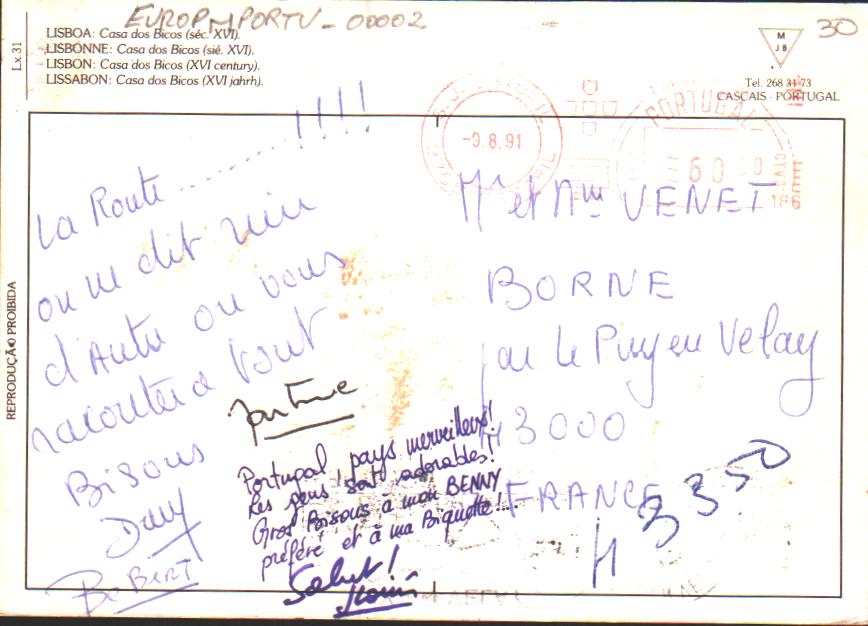 EUROP PORTU - 00002
30
Lx. 31
LISBOA: Casa dos Bicos (séc. XVI).
LISBONNE: Casa dos Bicos (sié. XVI).
LISBON: Casa dos Bicos (XVI century).
LISSABON: Casa dos Bicos (XVI jahrh).
M
J B
Tel. 268 34 73
CASCAIS - PORTUGAL
REPRODUÇÃO PROIBIDA
-9.8.91
PORTUGAL
60
La Route ..........!!!!
on ne dit rien
d'Autre on vous
racontera tout
Bisous
Dany
BeBERT
Mr et Mme VENET
BORNE
par le Puy en Velay
43000
FRANCE
43350
Portugal, pays merveilleux!
Les gens sont adorables!!
Gros Bisous à mon BENNY
préféré et à ma Biquette!...
Salut!